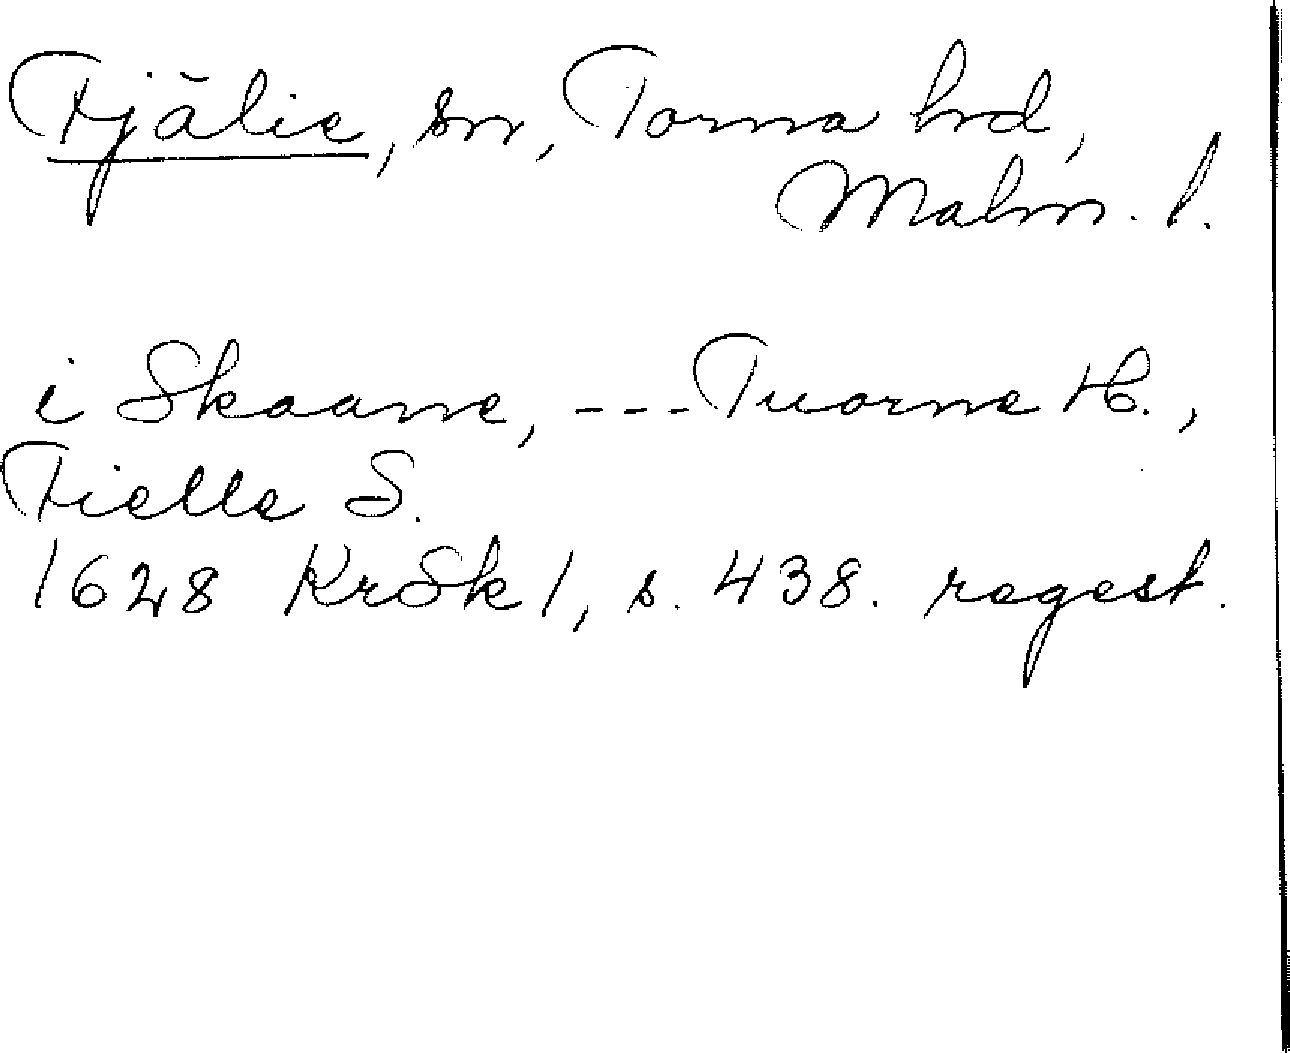 Fjälie, sn, Torna hrd,
Malm. l.
i Skaane, --- Tuorne H.,
Fielle S.
1628 KrSk 1, s. 438. regest.